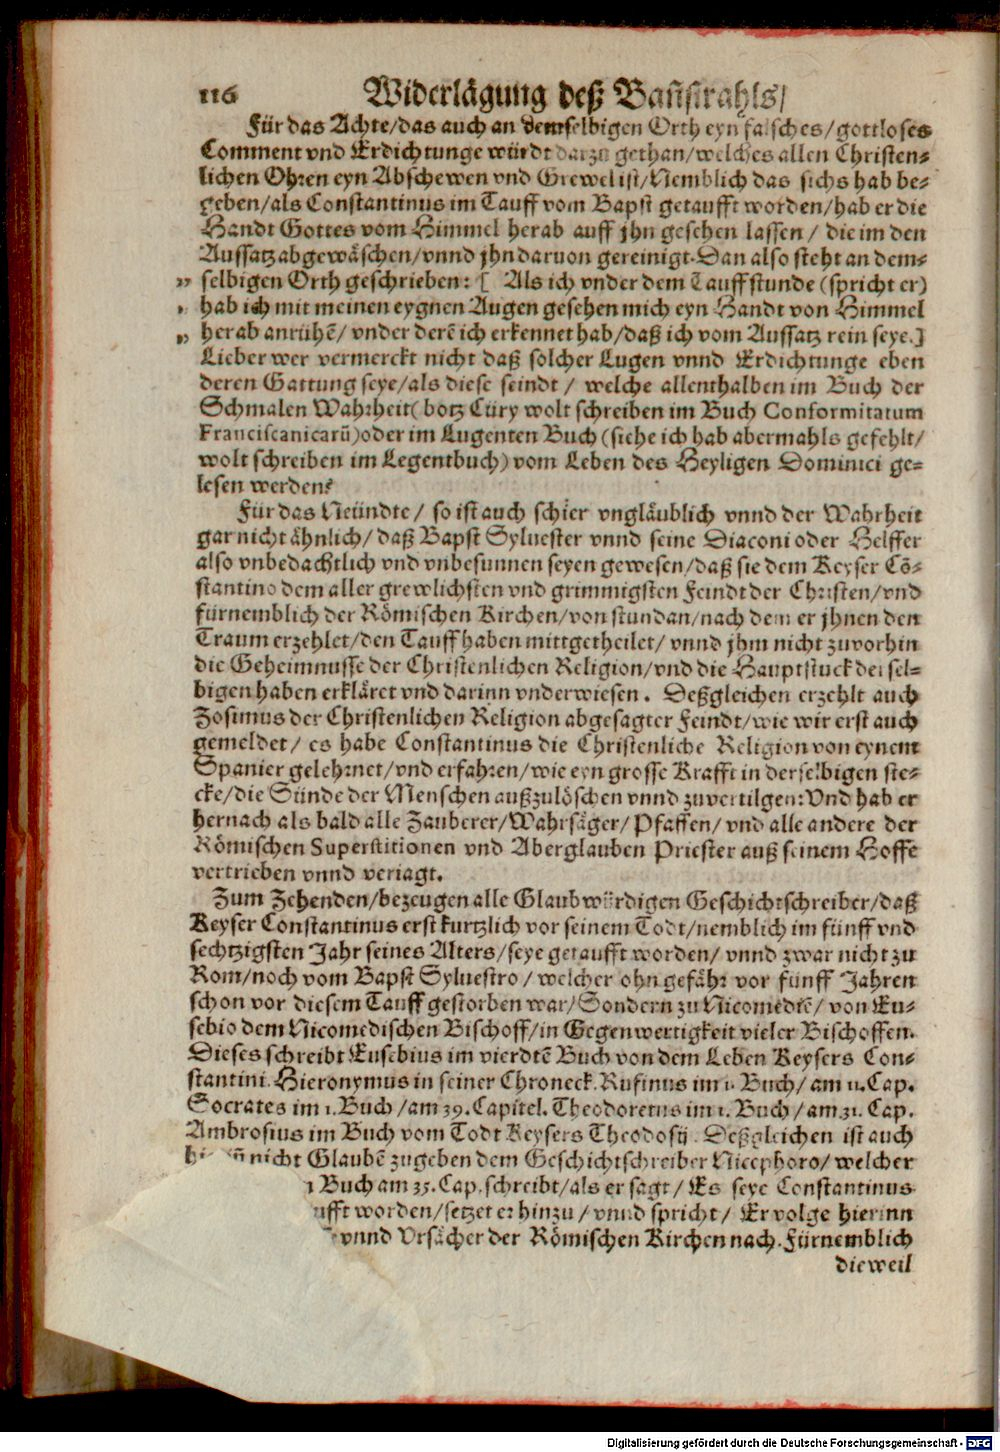 116 Widerlägung deß Bañstrahls/
Für das Achte/das auch an demselbigen Orth eyn falsches/gottloses
Comment vnd Erdichtunge würdt darzu gethan/welches allen Christen-
lichen Ohren eyn Abschewen vnd Grewel ist/Nemblich das sichs hab be-
geben/als Constantinus im Tauff vom Bapst getaufft worden/hab er die
Handt Gottes vom Himmel herab auff jhn gesehen lassen/ die im den
Aussatz abgewäschen/vnnd jhn daruon gereinigt. Dan also steht an dem-
„ selbigen Orth geschrieben: [ Als ich vnder dem Tauff stunde (spricht er)
„ hab ich mit meinen eygnen Augen gesehen mich eyn Handt von Himmel
„ herab anrühẽ/ vnder derẽ ich erkennet hab/daß ich vom Aussatz rein seye.]
Lieber wer vermerckt nicht daß solcher Lugen vnnd Erdichtunge eben
deren Gattung seye/als diese seindt/ welche allenthalben im Buch der
Schmalen Wahrheit( botz Cüry wolt schreiben im Buch Conformitatum
Franciscanicarũ)oder im Lugenten Buch (siehe ich hab abermahls gefehlt/
wolt schreiben im Legentbuch) vom Leben des Heyligen Dominici ge-
lesen werden?
Für das Neündte/ so ist auch schier vngläublich vnnd der Wahrheit
gar nicht ähnlich/ daß Bapst Syluester vnnd seine Diaconi oder Helffer
also vnbedachtlich vnd vnbesunnen seyen gewesen/daß sie dem Keyser Cõ-
stantino dem aller grewlichsten vnd grimmigsten Feindt der Christen/vnd
fürnemblich der Römischen Kirchen/von stundan/nach dem er jhnen den
Traum erzehlet/den Tauff haben mittgetheilet/ vnnd jhm nicht zuvorhin
die Geheimnusse der Christenlichen Religion/vnd die Hauptstuck dersel-
bigen haben erkläret vnd darinn vnderwiesen. Deßgleichen erzehlt auch
Zosimus der Christenlichen Religion abgesagter Feindt/wie wir erst auch
gemeldet/ es habe Constantinus die Christenliche Religion von eynem
Spanier gelehrnet/vnd erfahren/wie eyn grosse Krafft in derselbigen ste-
cke/die Sünde der Menschen außzulöschen vnnd zuvertilgen: Vnd hab er
hernach als bald alle Zauberer/Wahrsäger/Pfaffen/ vnd alle andere der
Römischen Superstitionen vnd Aberglauben Priester auß seinem Hoffe
vertrieben vnnd veriagt.
Zum Zehenden/bezeugen alle Glaubwürdigen Geschichtschreiber/daß
Keyser Constantinus erst kurtzlich vor seinem Todt/nemblich im fünff vnd
sechtzigsten Jahr seines Alters/seye getaufft worden/ vnnd zwar nicht zu
Rom/noch vom Bapst Syluestro/ welcher ohngefähr vor fünff Jahren
schon vor diesem Tauff gestorben war/Sondern zu Nicomediẽ/ von Eu-
sebio dem Nicomedischen Bischoff/in Gegenwertigkeit vieler Bischoffen.
Dieses schreibt Eusebius im vierdtẽ Buch von dem Leben Keysers Con-
stantini. Hieronymus in seiner Chroneck. Rufinus im 1. Buch/ am 11. Cap.
Socrates im 1. Buch/am 39. Capitel. Theodoretus im 1. Buch/ am 31. Cap.
Ambrosius im Buch vom Todt Keysers Theodosij. Deßgleichen ist auch
nicht Glaubẽ zugeben dem Geschichtschreiber Nicephoro/ welcher
Buch am 35. Cap. schreibt/als er sagt/ Es seye Constantinus
ufft worden/setzet er hinzu/ vnnd spricht/ Er volge hierinn
vnnd Vrsächer der Römischen Kirchen nach. Fürnemblich
dieweil
Digitalisierung gefördert durch die Deutsche Forschungsgemeinschaft - DFG